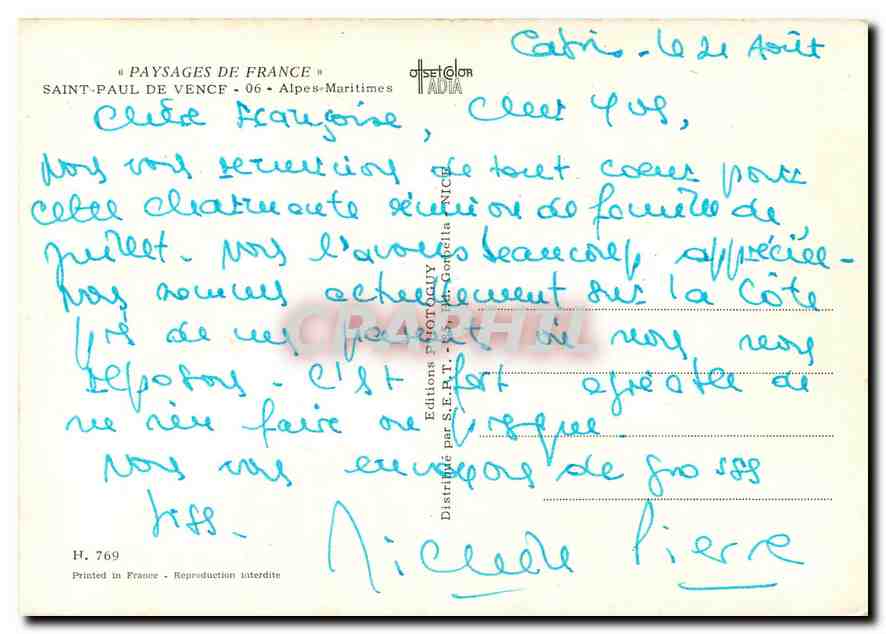 Cabris - le 21 Août
« PAYSAGES DE FRANCE »
SAINT-PAUL DE VENCE - 06 - Alpes-Maritimes
OFFSETCOLOR
ADIA
Chère Françoise, Cher Yves,
Nous vous remercions de tout coeur pour
cette charmante réunion de famille de
juillet. Nous l'avons beaucoup appréciée.
Nous sommes actuellement sur la Côte
près de mes parents où nous nous
reposons. C'est fort agréable de
ne rien faire ou presque.
Nous vous envoyons de grosses
bises.
Michèle Pierre
Editions PHOTOGUY
Distribué par S.E.P.T. - Bd. Gorbella - NICE
CPARAMA
H. 769
Printed in France - Reproduction interdite